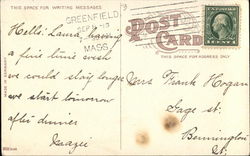 THIS SPACE FOR WRITING MESSAGES
GREENFIELD
MASS.
POST
CARD
THIS SPACE FOR ADDRESS ONLY
Hello Laura, having
a fine time wish
we could stay longer
we start tomorrow
after dinner
Mrs Frank Hogan
Gage st.
Bennington
Vt.